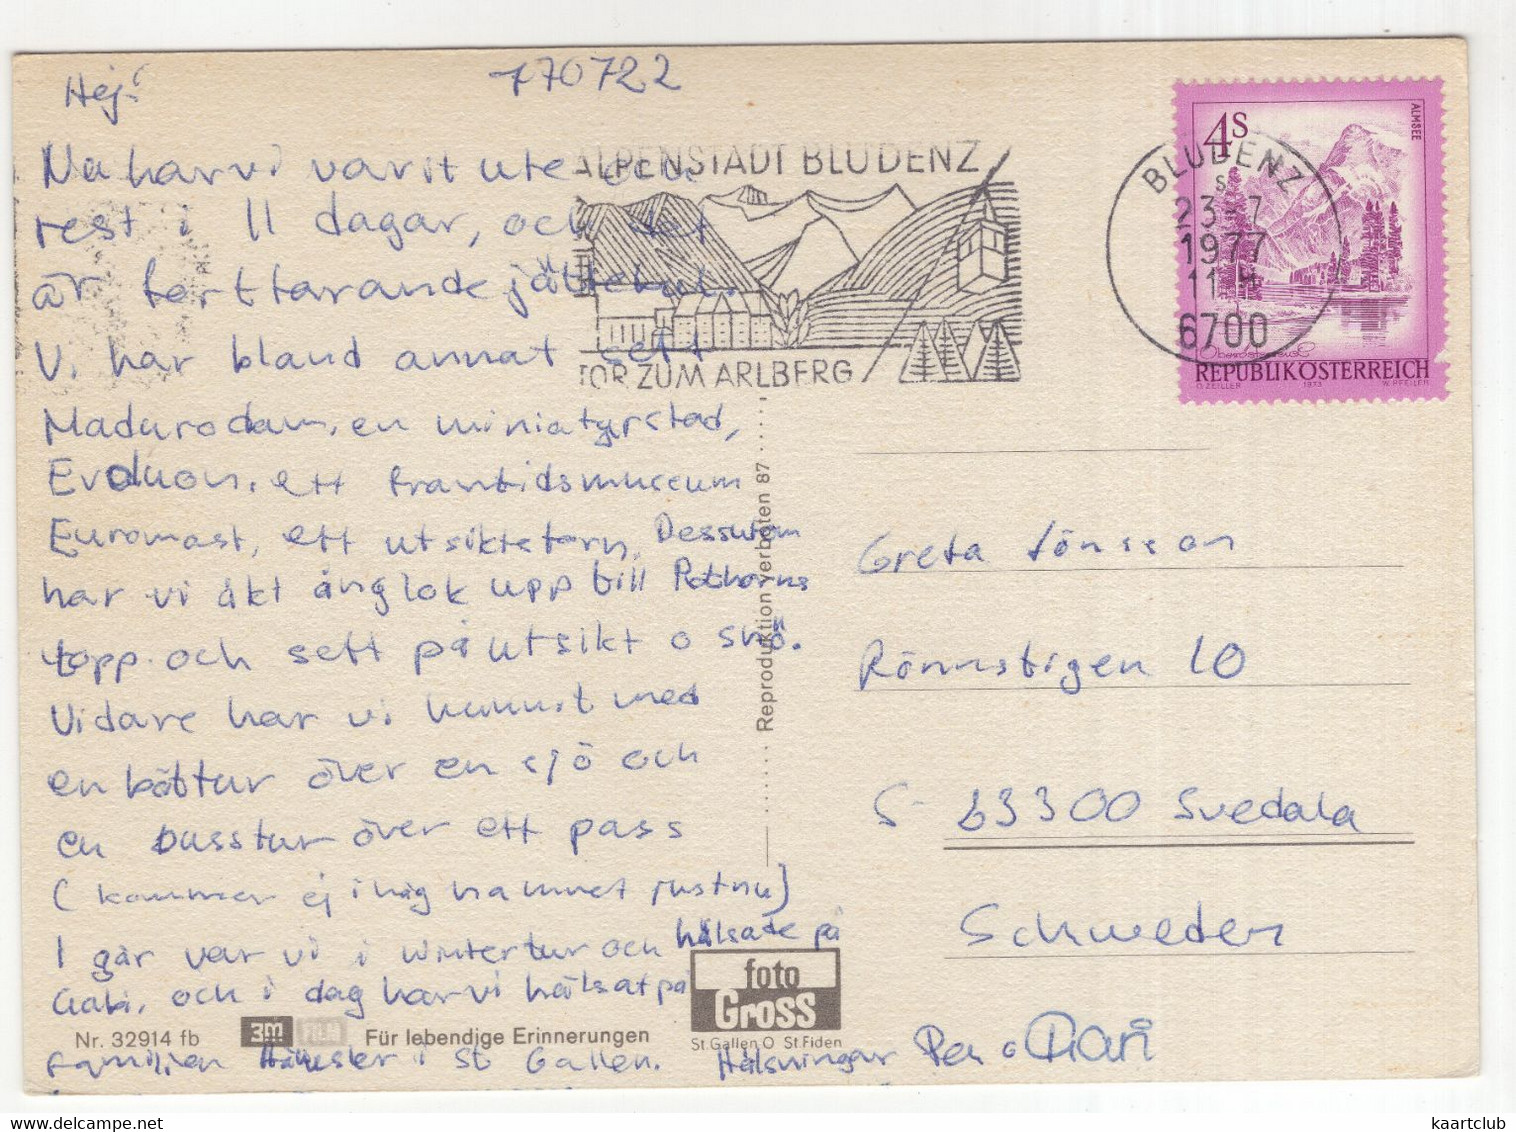 Hej!
770722
Nu har vi varit ute och
rest i 11 dagar, och det
är fortfarande jättekul.
Vi har bland annat sett
Madurodam, en miniatyrstad,
Evoluon, ett framtidsmuseum
Euromast, ett utsiktstorn. Dessutom
har vi åkt ånglok upp till Rothorns
topp och sett på utsikt o snö.
Vidare har vi hunnit med
en båttur över en sjö och
en busstur över ett pass
(kommer ej ihåg namnet just nu)
I går var vi i Wintertur och hälsade på
Gabi, och i dag har vi hälsat på
familjen Häusler i St Gallen. Hälsningar Per o Mari
ALPENSTADT BLUDENZ
TOR ZUM ARLBERG
BLUDENZ
s
23-7
1977
11-H
6700
4S
ALMSEE
Oberösterreich
REPUBLIK ÖSTERREICH
O. ZEILLER 1973 W. PFEILER
Reproduktion verboten 87
Greta Jönsson
Rönnstigen 10
S-23300 Svedala
Schweden
Nr. 32914 fb 3M FILM Für lebendige Erinnerungen
foto
Gross
St. Gallen O St. Fiden
kaartclub